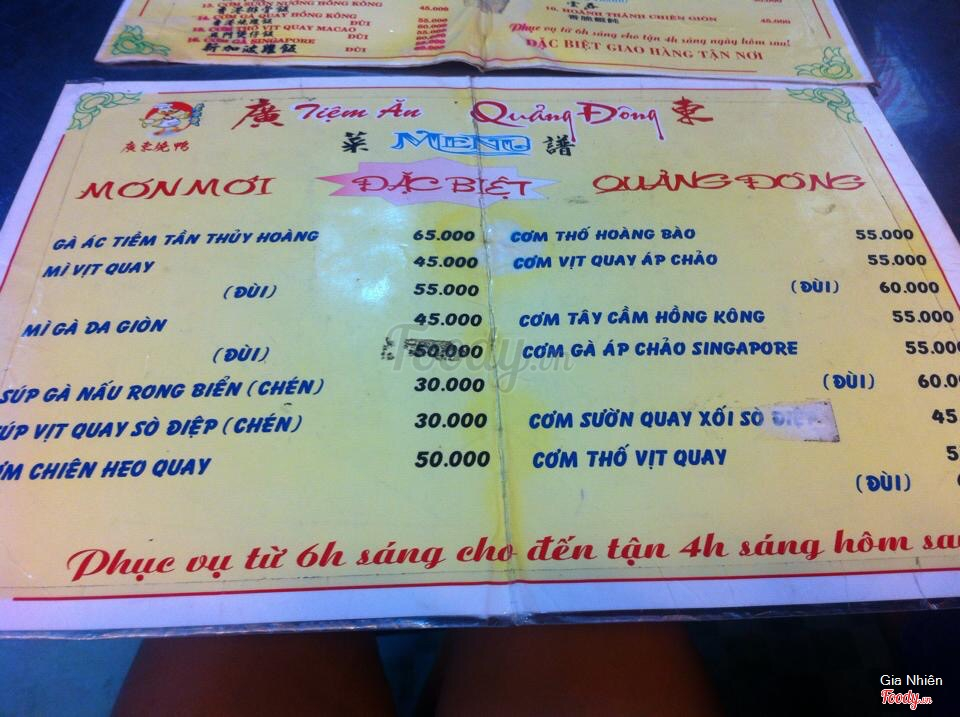 13. CƠM SƯỜN NƯỚNG HỒNG KÔNG 45.000
14. CƠM GÀ QUAY HỒNG KÔNG 55.000
ĐÙI 60.000
15. CƠM THỐ VỊT QUAY MACAO
ĐÙI
16. CƠM GÀ SINGAPORE
新加波雞飯 ĐÙI
10. HOÀNH THÁNH CHIÊN GIÒN 45.000
Phục vụ từ 6h sáng cho tận 4h sáng ngày hôm sau!
ĐẶC BIỆT GIAO HÀNG TẬN NƠI
廣 Tiệm Ăn Quảng Đông 東
廣東燒鴨
菜 MENU 譜
MÓN MỚI ĐẶC BIỆT QUẢNG ĐÔNG
GÀ ÁC TIỀM TẦN THỦY HOÀNG 65.000
MÌ VỊT QUAY 45.000
(ĐÙI) 55.000
MÌ GÀ DA GIÒN 45.000
(ĐÙI) 50.000
SÚP GÀ NẤU RONG BIỂN (CHÉN) 30.000
ÚP VỊT QUAY SÒ ĐIỆP (CHÉN) 30.000
ƠM CHIÊN HEO QUAY 50.000
CƠM THỐ HOÀNG BÀO 55.000
CƠM VỊT QUAY ÁP CHẢO 55.000
(ĐÙI) 60.000
CƠM TÂY CẦM HỒNG KÔNG 55.000
CƠM GÀ ÁP CHẢO SINGAPORE 55.000
(ĐÙI) 60.0
CƠM SƯỜN QUAY XỐI SÒ ĐIỆP 45
CƠM THỐ VỊT QUAY 5
(ĐÙI)
Phục vụ từ 6h sáng cho đến tận 4h sáng hôm sa
Foody.vn
Gia Nhiên
Foody.vn